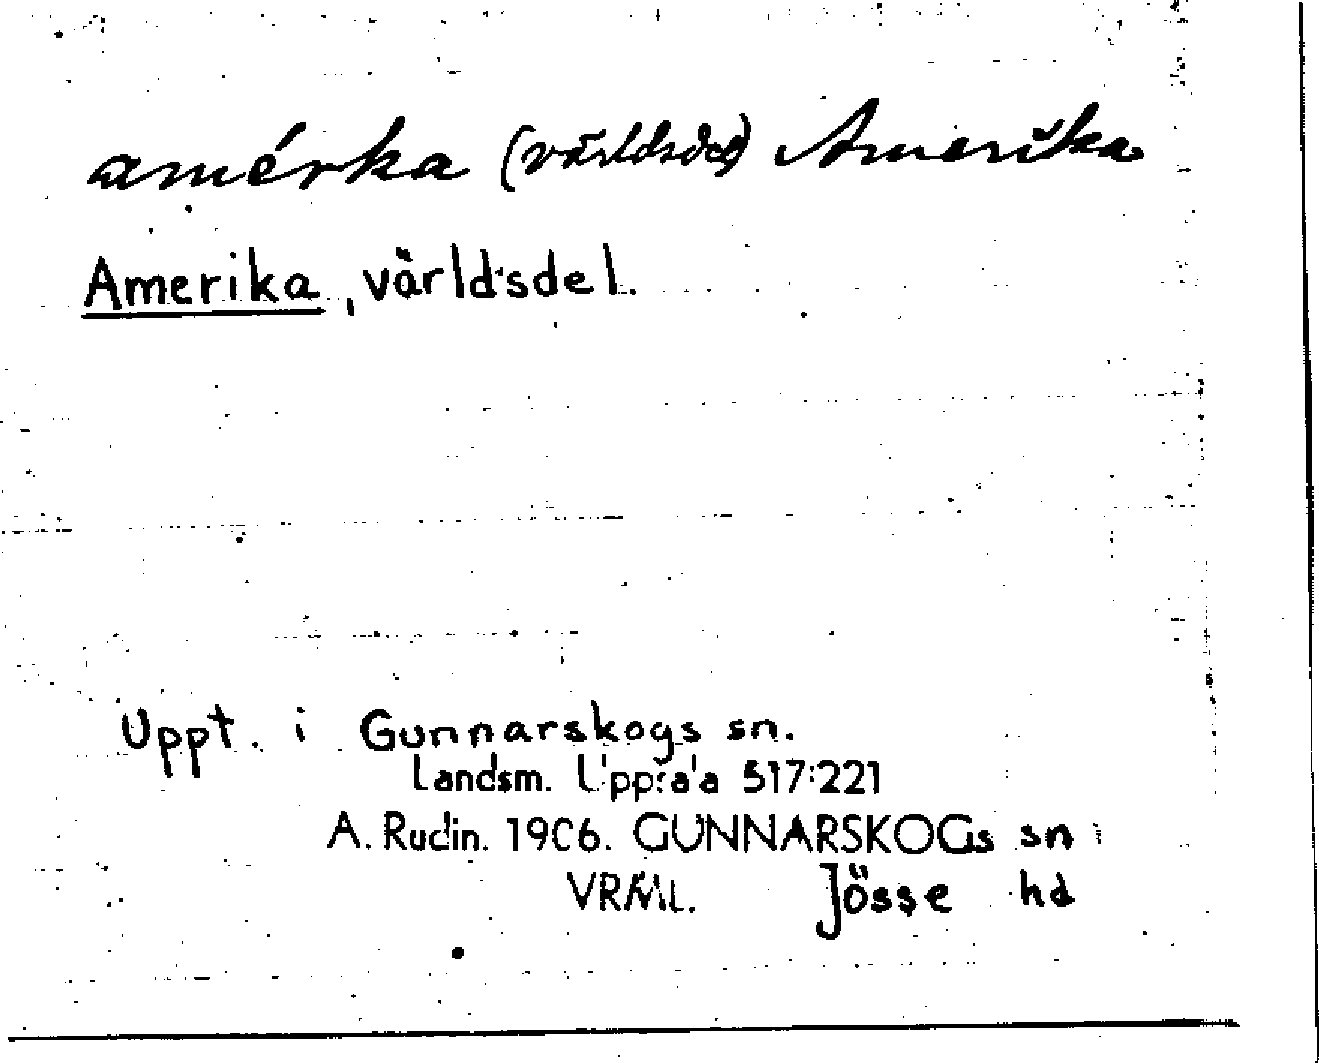 amérka (världsdel) Amerika
Amerika, världsdel.
Uppt. i Gunnarskogs sn.
Landsm. Uppsala 517:221
A. Rudin. 1906. GUNNARSKOGs sn
VRML. Jösse hd